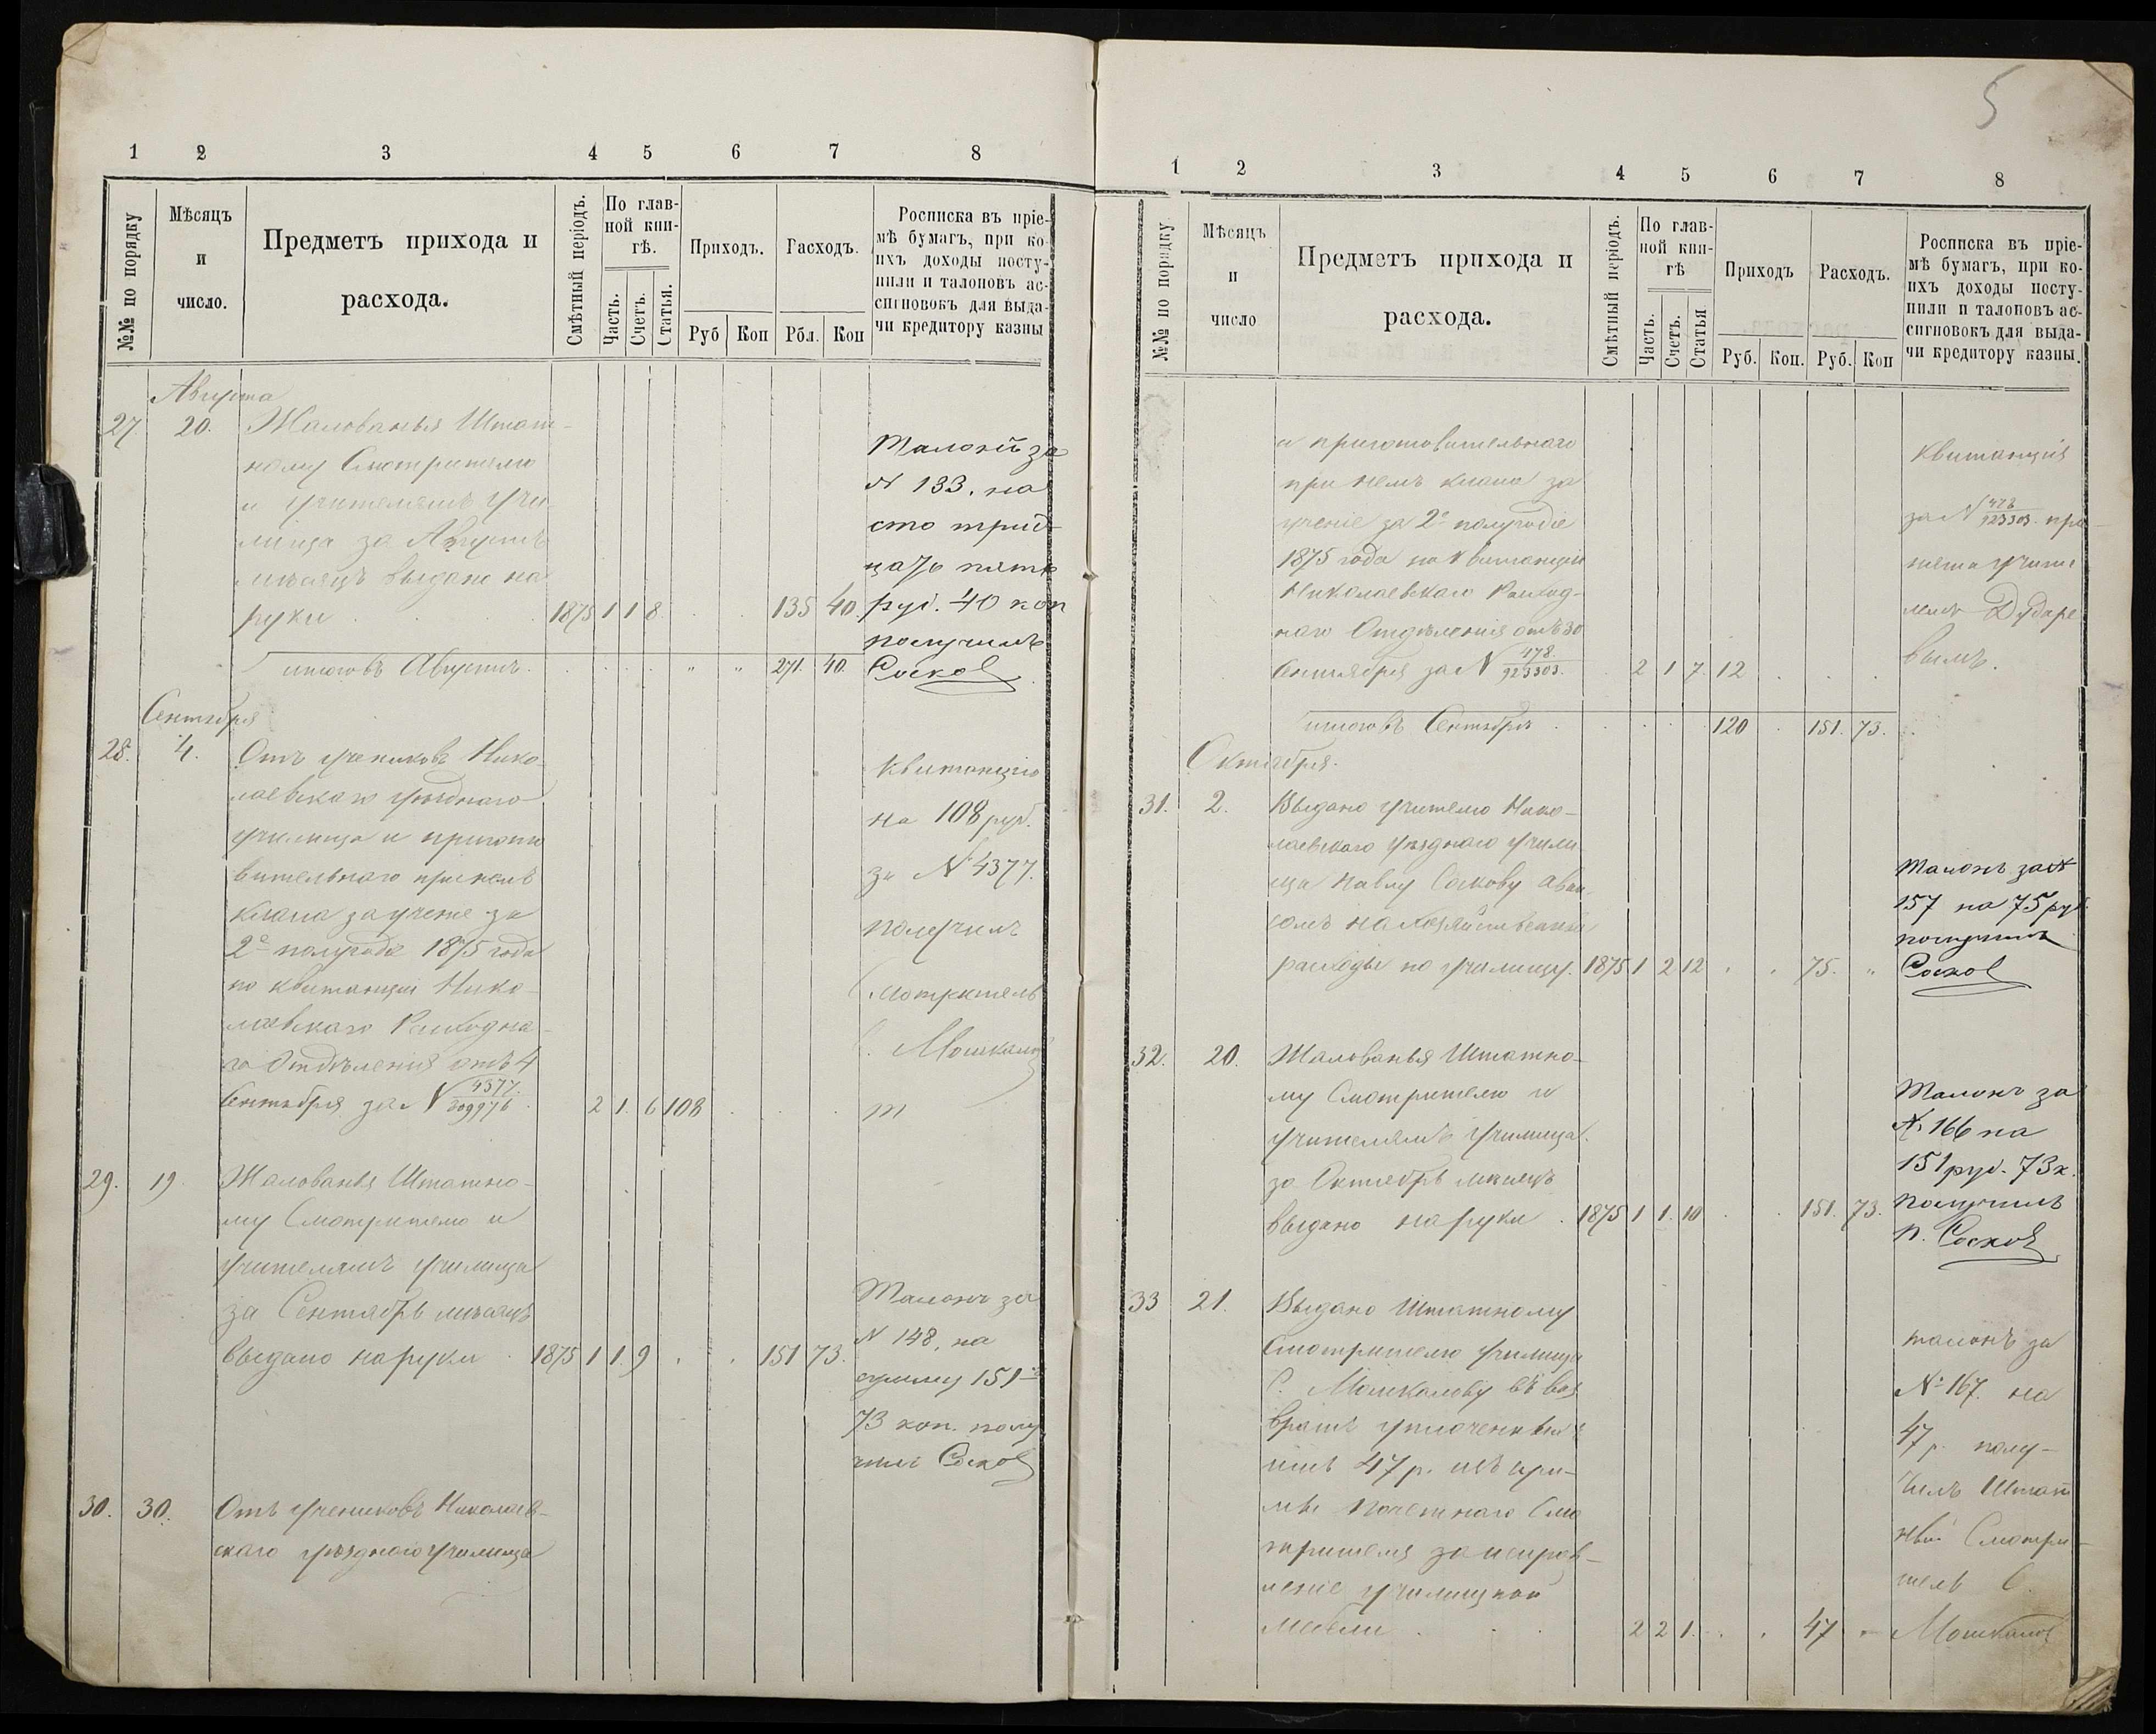 1 2 3 4 5 6 7 8
№№ по порядку
Мѣсяцъ
и
число.
Предметъ прихода и
расхода.
Смѣтный періодъ.
По глав-
ной кни-
гѣ.
Часть.
Счетъ.
Статья.
Приходъ.
Руб Коп
Расходъ.
Рбл. Коп
Росписка въ пріе-
мѣ бумагъ, при ко-
ихъ доходы посту-
пили и талоновъ ас-
сигновокъ для выда-
чи кредитору казны
Августа
27. 20. Жалованья Штат-
ному Смотрителю
и учителямъ учи-
лища за Августъ
мѣсяцъ выдано на
руки 1875 1 1 8 135 40
Талонъ за
№ 133. на
сто трид-
цать пять
руб. 40 коп
получилъ
Сосков
итого въ Августѣ. " " 271. 40.
Сентября
28. 4. Отъ учениковъ Нико-
лаевскаго уѣзднаго
училища и пригото
вительнаго при немъ
класса за ученье за
2е полугодіе 1875 года
по квитанціи Нико-
лаевскаго Расходна-
го Отдѣленія отъ 4
Сентября за № 4377. 309976 2 1. 6 108
Квитанцію
на 108 руб.
за № 4377.
получилъ
Смотритель
С. Мошкалов
29. 19. Жалованья Штатно-
му Смотрителю и
учителямъ училища
за Сентябрь мѣсяцъ
выдано на руки 1875 1 1. 9 151 73.
Талонъ за
№ 148, на
сумму 151
73 коп. полу
чилъ Сосков
30. 30. Отъ учениковъ Николаев-
скаго уѣзднаго училища
5
1 2 3 4 5 6 7 8
№№ по порядку
Мѣсяцъ
и
число
Предметъ прихода и
расхода.
Смѣтный періодъ.
По глав-
ной кни-
гѣ
Часть.
Счетъ.
Статья
Приходъ
Руб. Коп.
Расходъ.
Руб. Коп
Росписка въ пріе-
мѣ бумагъ, при ко-
ихъ доходы посту-
пили и талоновъ ас-
сигновокъ для выда-
чи кредитору казны.
и приготовительнаго
при немъ класса за
ученіе за 2е полугодіе
1875 года по квитанціи
Николаевскаго Расход-
наго Отдѣленія отъ 30
Сентября за № 478. 923303. 2 1 7. 12
Квитанція
за № 478 923303. при
нята учите
лемъ Дударе
вымъ.
итого въ Сентябрѣ 120 151. 73.
Октября.
31. 2. Выдано учителю Нико-
лаевскаго уѣзднаго учили
ща Павлу Соскову аван
сомъ на хозяйственные
расходы по училищу. 1875 1 2 12 75. "
Талонъ за №
157 на 75 руб.
получилъ
Сосков
32. 20. Жалованья Штатно-
му Смотрителю и
учителямъ училища.
за Октябрь мѣсяцъ
выдано на руки. 1875 1 1. 10 151. 73.
Талонъ за
№ 166 на
151 руб. 73 к.
получилъ
П. Сосков
33 21. Выдано Штатному
Смотрителю училища
С. Мошкалову въ воз
вратъ уплоченныхъ
имъ 47 р.
Почетнаго Смо
трителя за исправ-
леніе училищной
мебели 2 2 1. 47
талонъ за
№ 167. на
47 р. полу-
чилъ Штат
ный Смотри-
тель С.
Мошкалов